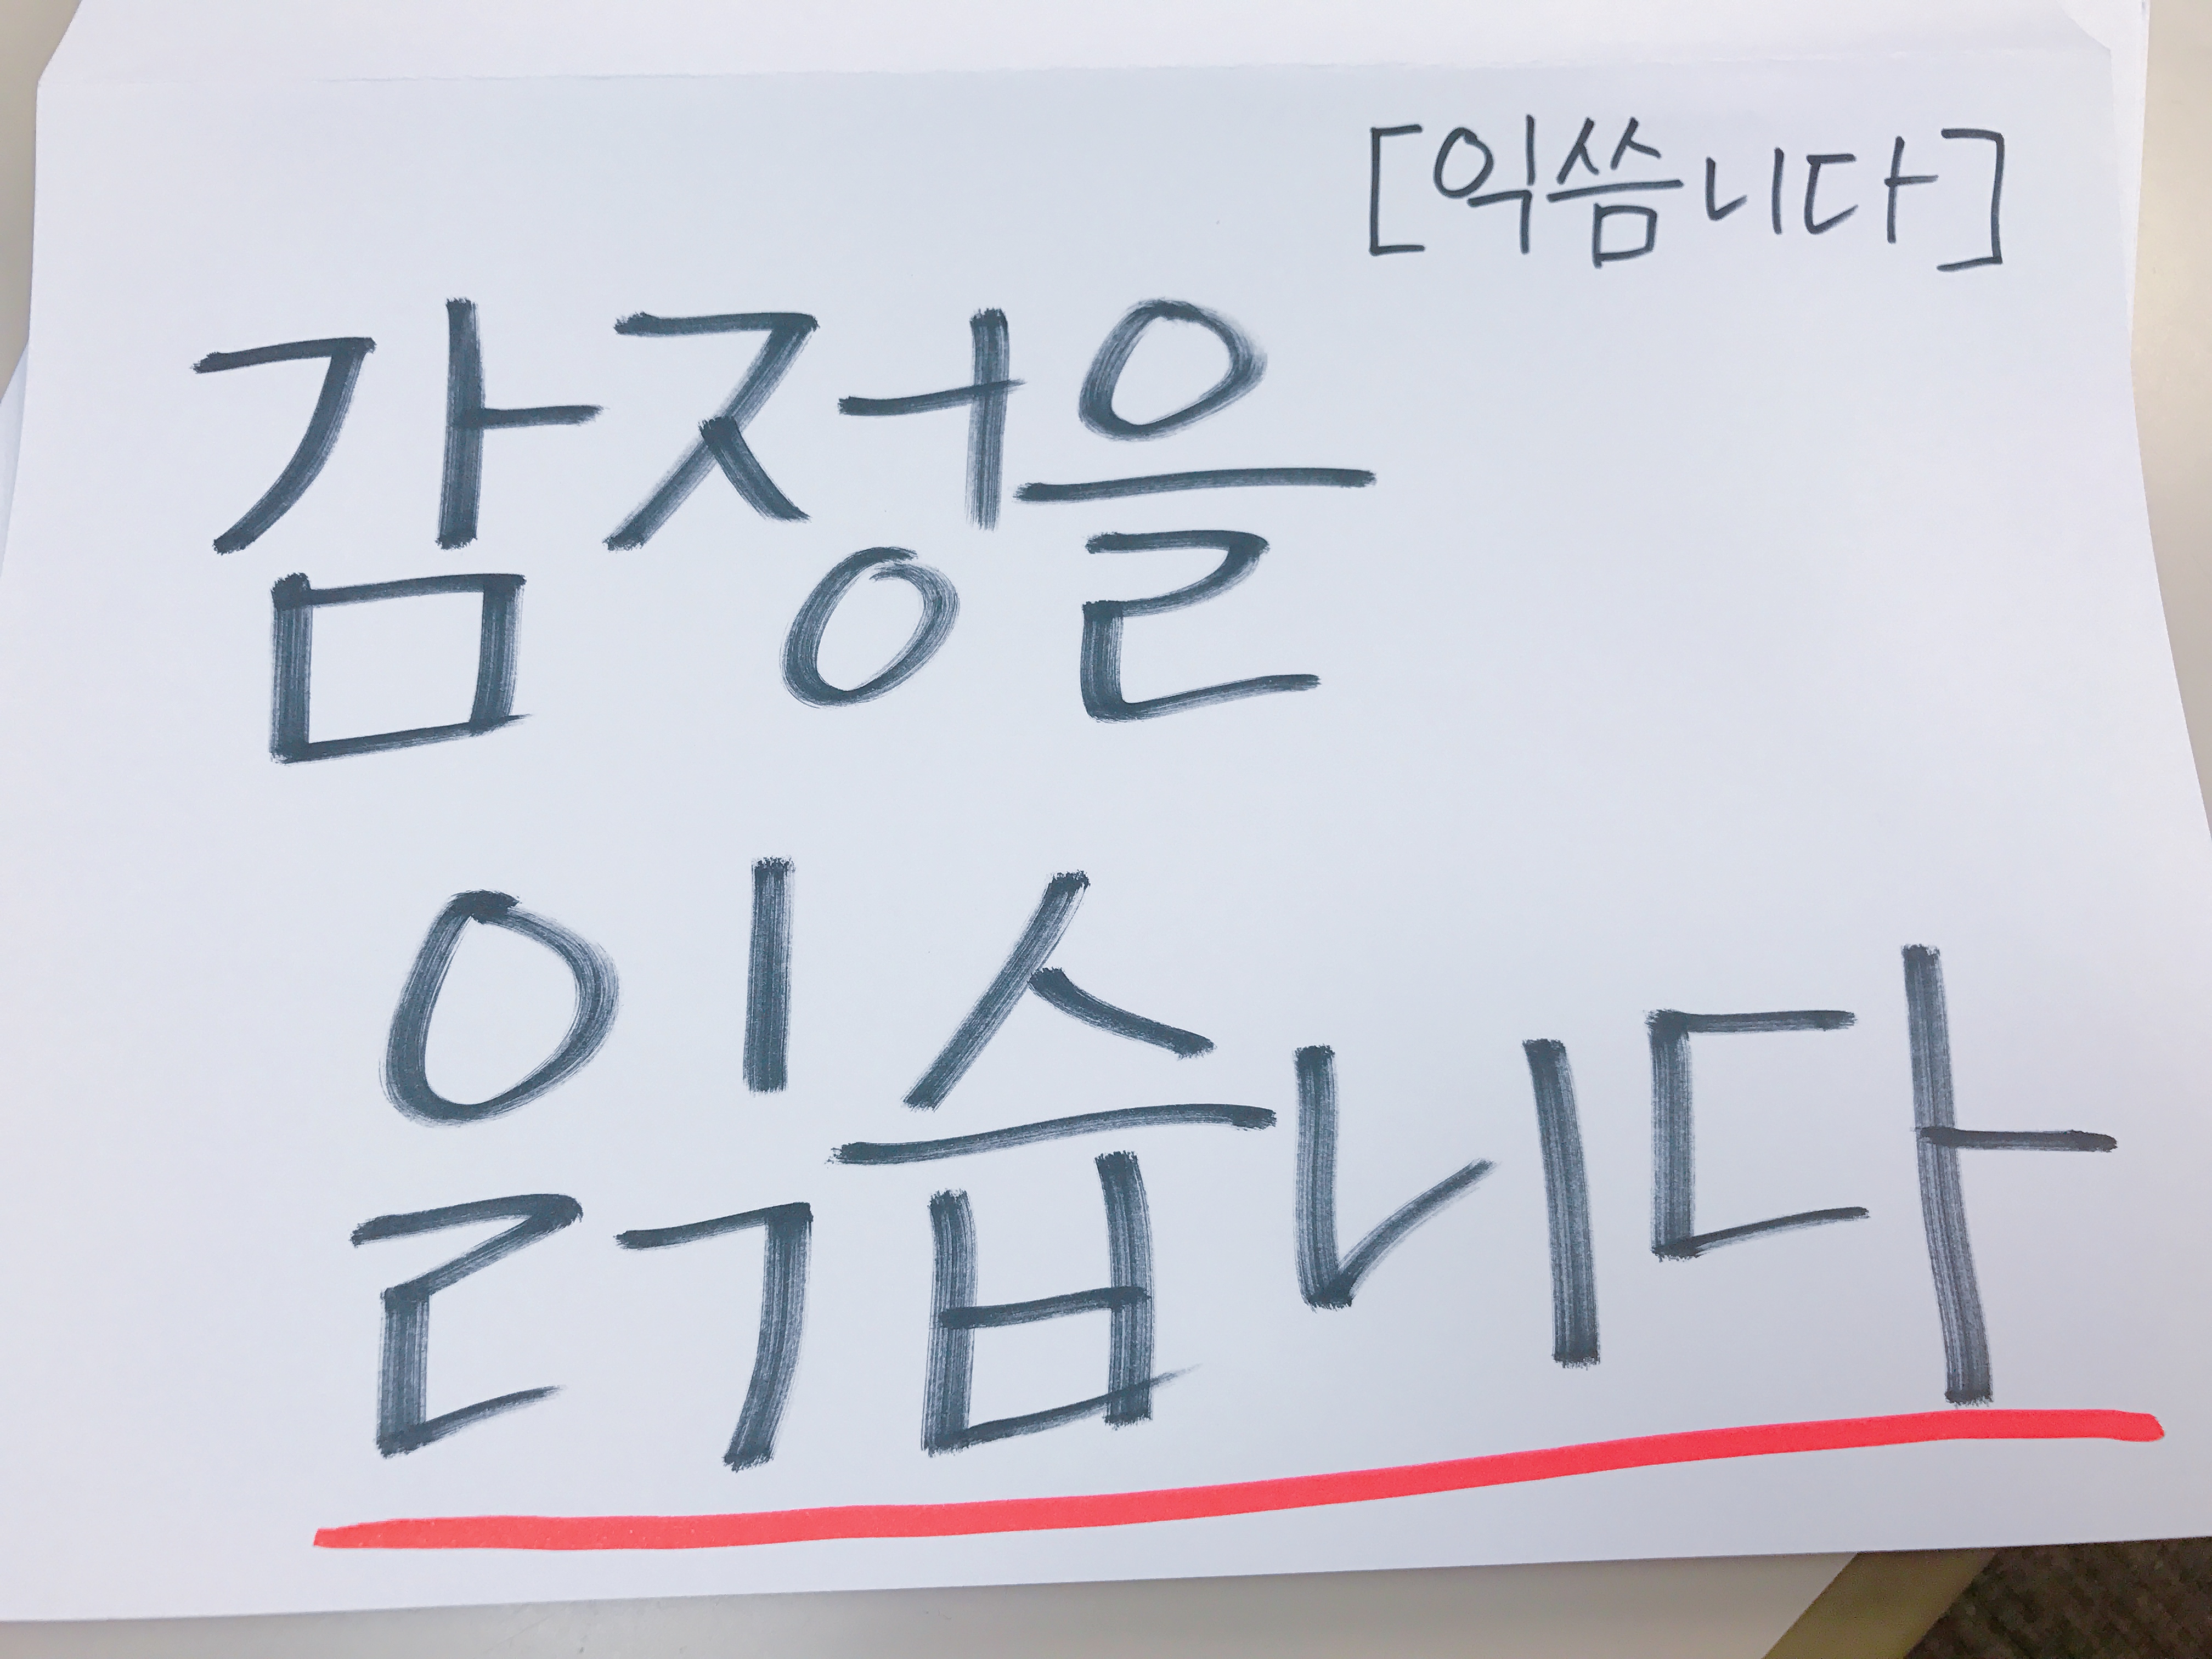 [익씀니다]
감정을
읽습니다